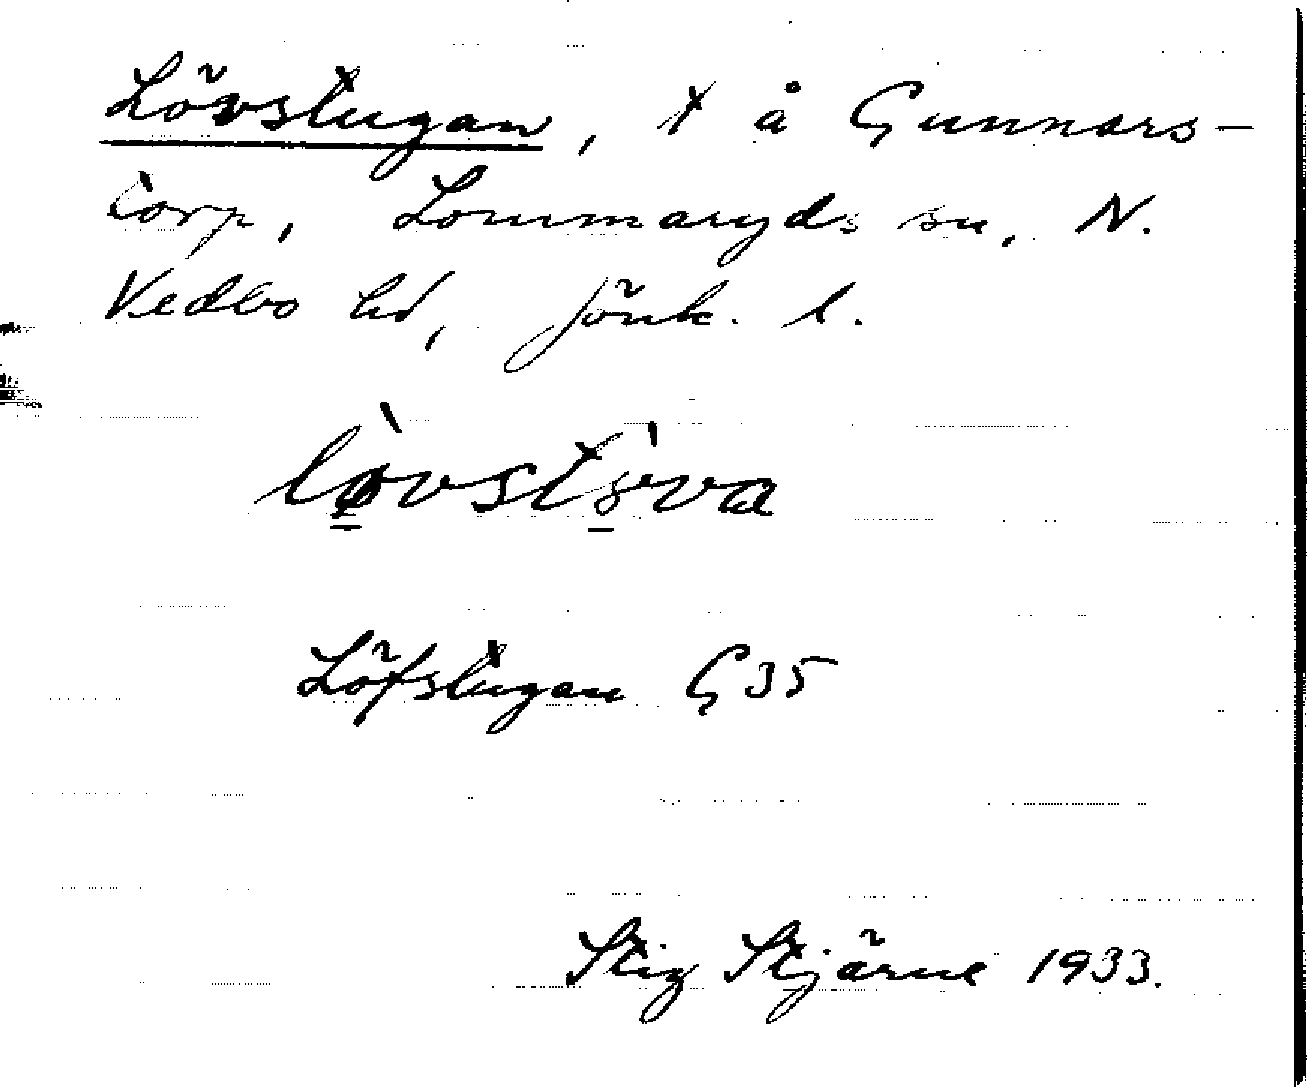 Lövstugan, t å Gunnars-
torp, Lommaryds sn, N.
Vedbo hd, Jönk. l.
Löfstugan G35
Stig Stjärne 1933.